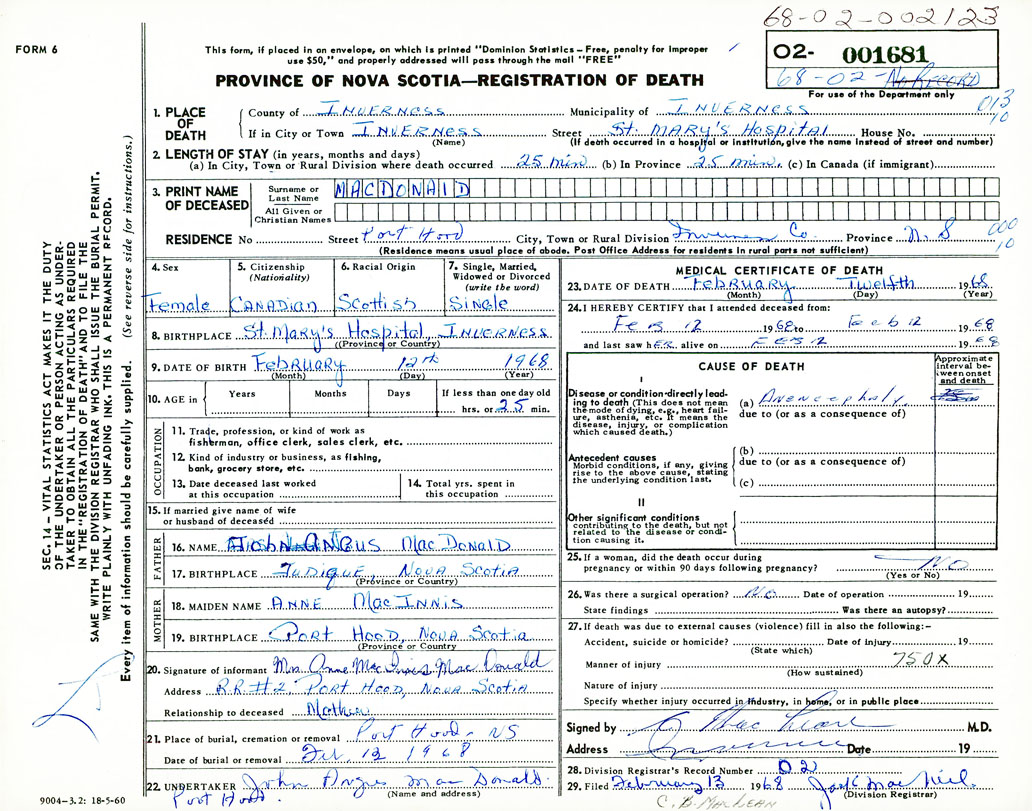 68-02-002123
FORM 6
This form, if placed in an envelope, on which is printed "Dominion Statistics – Free, penalty for improper
use $50," and properly addressed will pass through the mail "FREE"
02- 001681
68-02- No Record
For use of the Department only
PROVINCE OF NOVA SCOTIA—REGISTRATION OF DEATH
013
10
1. PLACE OF DEATH
County of INVERNESS Municipality of INVERNESS
If in City or Town INVERNESS Street St. MARY'S Hospital House No.
(Name) (If death occurred in a hospital or institution, give the name instead of street and number)
2. LENGTH OF STAY (in years, months and days)
(a) In City, Town or Rural Division where death occurred 25 min (b) In Province 25 min. (c) In Canada (if immigrant)
3. PRINT NAME OF DECEASED
Surname or Last Name MACDONALD
All Given or Christian Names
RESIDENCE No Street Port Hood City, Town or Rural Division Inverness Co. Province N. S
000
10
(Residence means usual place of abode. Post Office Address for residents in rural parts not sufficient)
4. Sex 5. Citizenship (Nationality) 6. Racial Origin 7. Single, Married, Widowed or Divorced (write the word)
Female CANADIAN Scottish SINGLE
8. BIRTHPLACE St Mary's Hospital, INVERNESS
(Province or Country)
9. DATE OF BIRTH FEBRUARY 12th 1968
(Month) (Day) (Year)
10. AGE in Years Months Days If less than one day old
hrs. or 25 min.
OCCUPATION
11. Trade, profession, or kind of work as
fisherman, office clerk, sales clerk, etc.
12. Kind of industry or business, as fishing,
bank, grocery store, etc.
13. Date deceased last worked
at this occupation
14. Total yrs. spent in
this occupation
15. If married give name of wife
or husband of deceased
FATHER
16. NAME ANGUS MacDONALD
17. BIRTHPLACE JUDIQUE, NOVA SCOTIA
(Province or Country)
MOTHER
18. MAIDEN NAME ANNE MacINNIS
19. BIRTHPLACE PORT HOOD, NOVA SCOTIA
(Province or Country)
20. Signature of informant Mrs Anne MacInnis MacDonald
Address RR#2 PORT HOOD, NOVA SCOTIA
Relationship to deceased Mother
21. Place of burial, cremation or removal Port Hood - NS
Date of burial or removal 1968
22. UNDERTAKER John Angus MacDonald
Port Hood. (Name and address)
9004–3.2: 18-5-60
MEDICAL CERTIFICATE OF DEATH
23. DATE OF DEATH February Twelfth 1968
(Month) (Day) (Year)
24. I HEREBY CERTIFY that I attended deceased from:
Feb 12 1968 to Feb 12 1968
and last saw hER alive on FEB 12 1968
CAUSE OF DEATH
Approximate interval between onset and death
I
Disease or condition directly leading to death (This does not mean
the mode of dying, e.g., heart failure, asthenia, etc. It means the
disease, injury, or complication
which caused death.)
(a) Anencephaly
due to (or as a consequence of)
Antecedent causes
Morbid conditions, if any, giving
rise to the above cause, stating
the underlying condition last.
(b)
due to (or as a consequence of)
(c)
II
Other significant conditions
contributing to the death, but not
related to the disease or condition causing it.
25. If a woman, did the death occur during
pregnancy or within 90 days following pregnancy? NO
(Yes or No)
26. Was there a surgical operation? No Date of operation 19
State findings Was there an autopsy?
27. If death was due to external causes (violence) fill in also the following:–
Accident, suicide or homicide? Date of injury 19
(State which)
Manner of injury 750X
(How sustained)
Nature of injury
Specify whether injury occurred in industry, in home, or in public place
Signed by M.D.
Address Inverness Date 19
28. Division Registrar's Record Number 02
29. Filed February 13 1968 Jack MacNeil
(Division Registrar)
C. B. MacLean
SEC. 14 – VITAL STATISTICS ACT MAKES IT THE DUTY
OF THE UNDERTAKER OR PERSON ACTING AS UNDER-
TAKER TO OBTAIN ALL THE PARTICULARS REQUIRED
IN THE "REGISTRATION OF DEATH" AND TO FILE THE
SAME WITH THE DIVISION REGISTRAR WHO SHALL ISSUE THE BURIAL PERMIT.
WRITE PLAINLY WITH UNFADING INK. THIS IS A PERMANENT RECORD.
Every item of information should be carefully supplied. (See reverse side for instructions.)